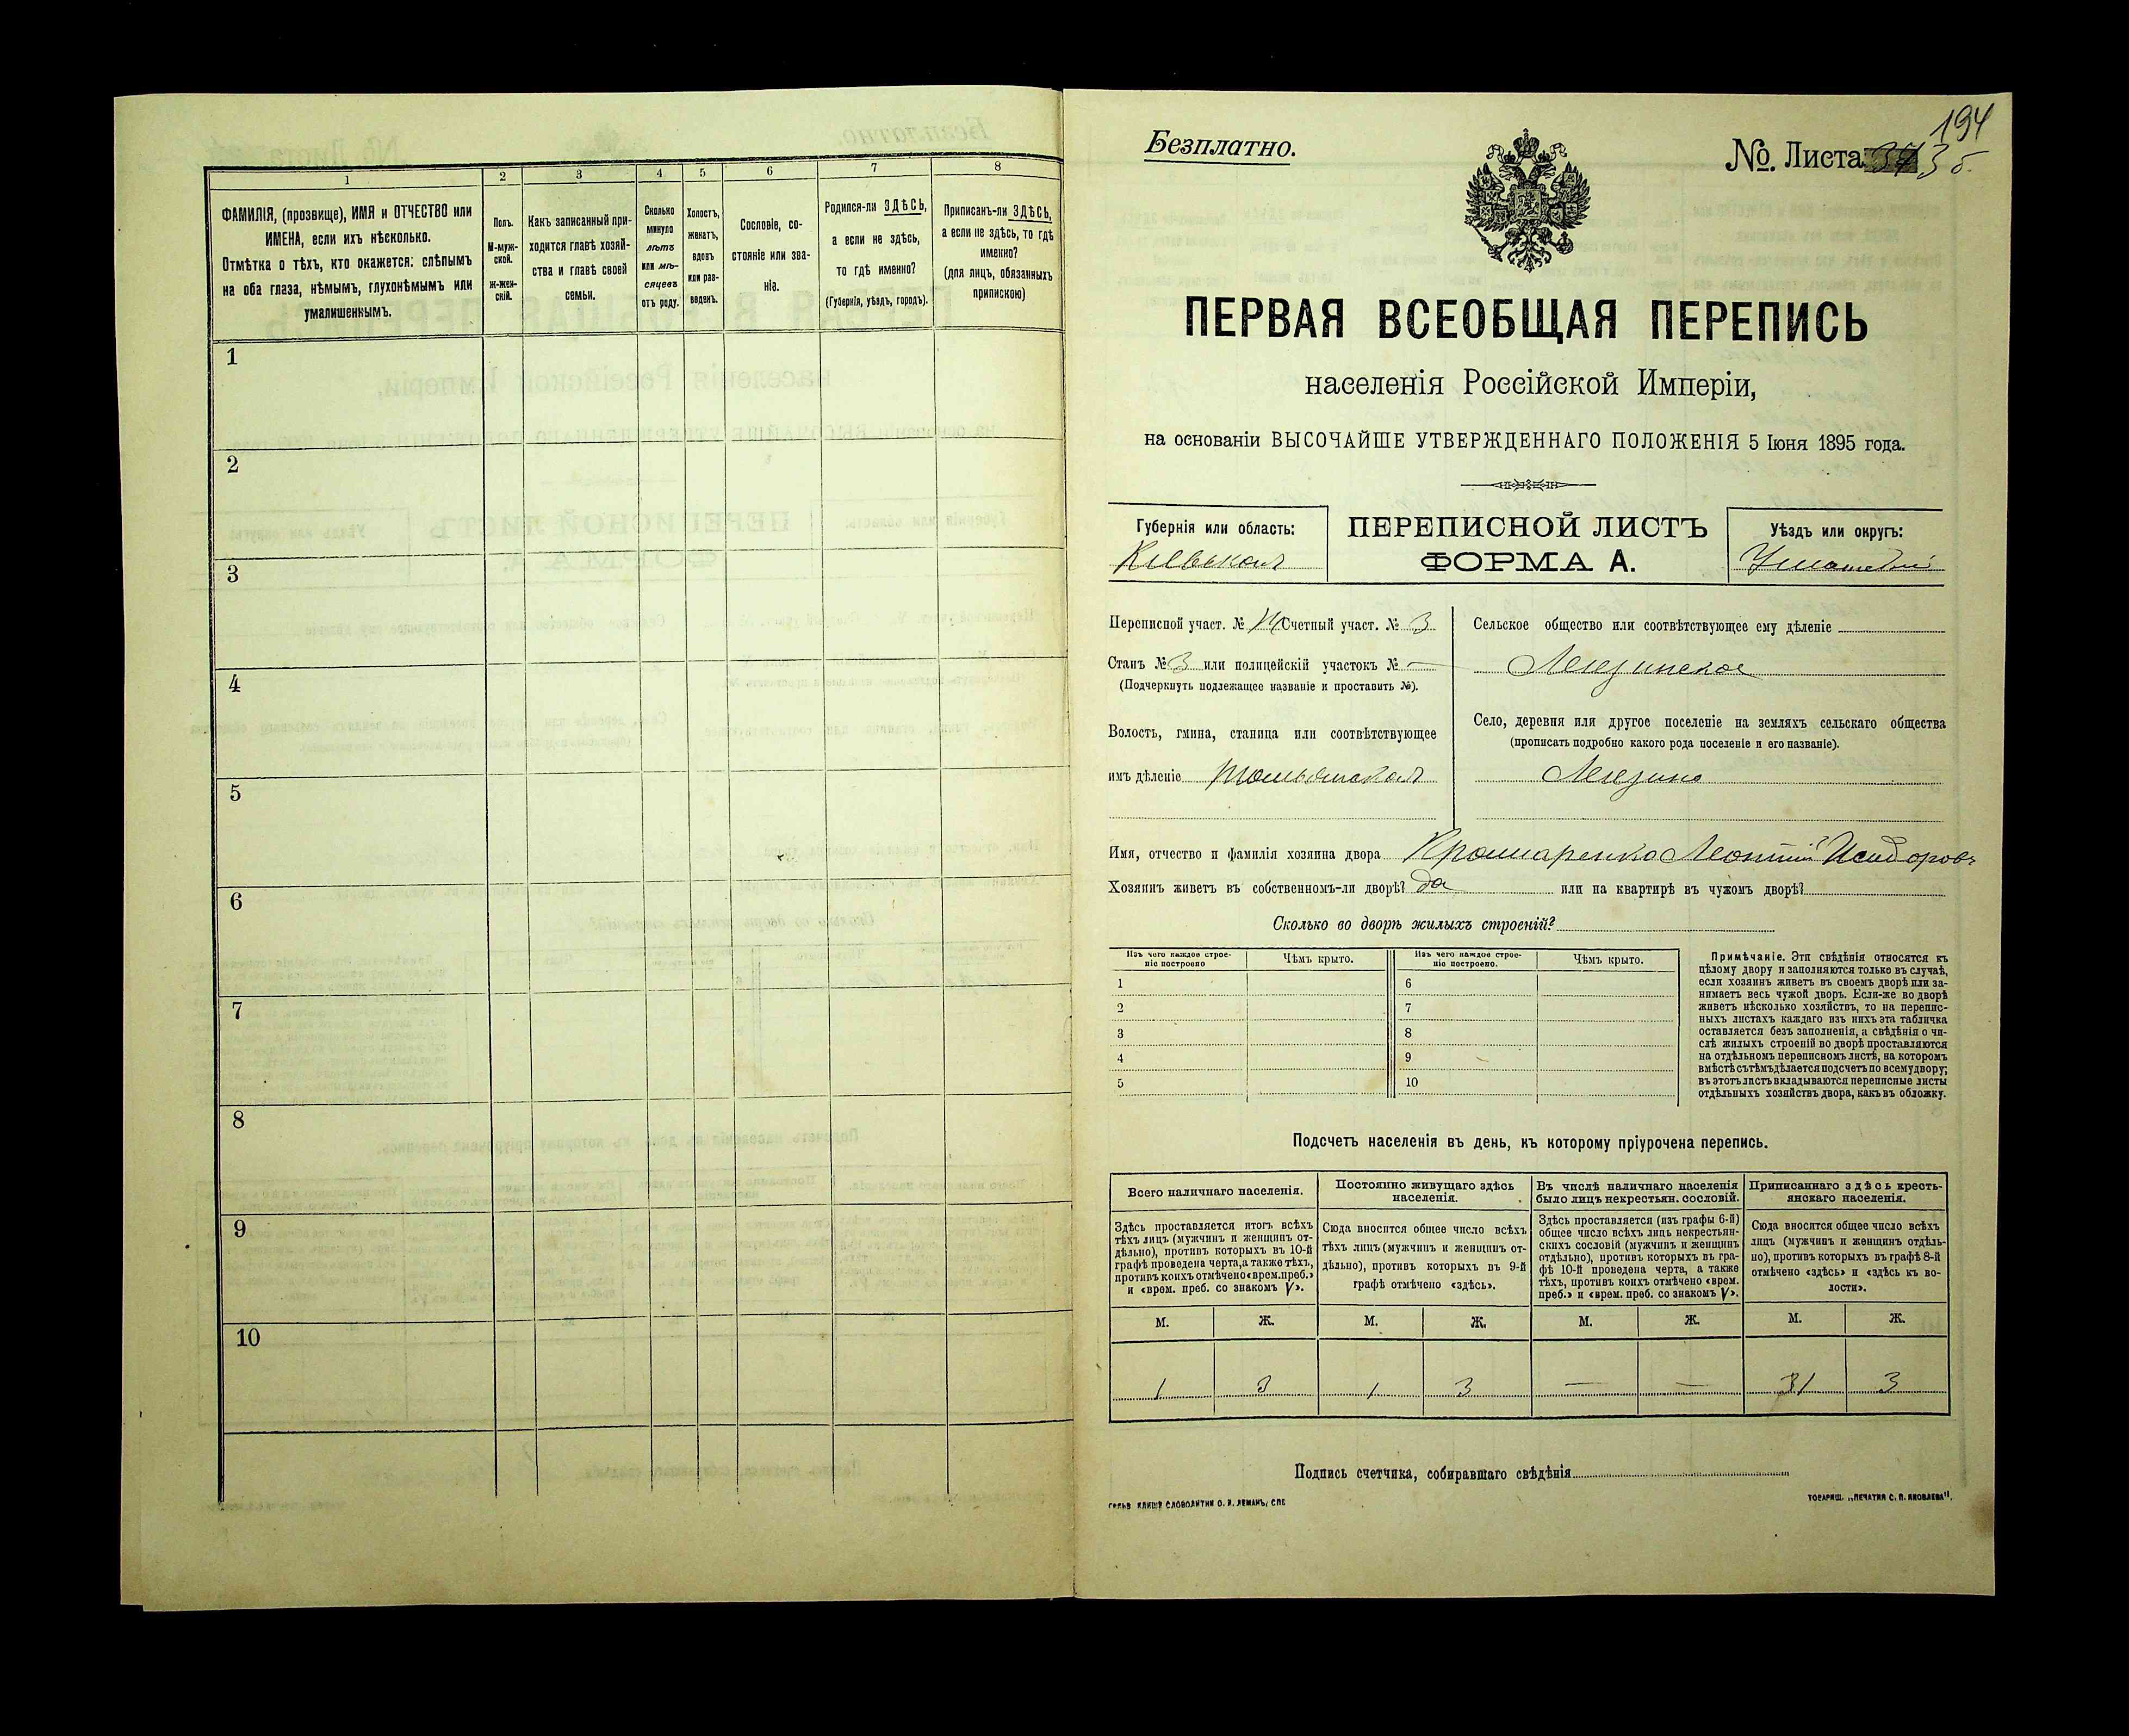 1
2
3
4
5
6
7
8
ФАМИЛІЯ, (прозвище), ИМЯ и ОТЧЕСТВО или
ИМЕНА, если ихъ нѣсколько.
Отмѣтка о тѣхъ, кто окажется: слѣпымъ
на оба глаза, нѣмымъ, глухонѣмымъ или
умалишеннымъ.
Полъ.
М-муж-
ской.
Ж-жен-
скій.
Какъ записанный при-
ходится главѣ хозяй-
ства и главѣ своей
семьи.
Сколько
минуло
лѣтъ
или мѣ-
сяцевъ
отъ роду.
Холостъ,
женатъ,
вдовъ
или раз-
веденъ.
Сословіе, со-
стояніе или зва-
ніе.
Родился-ли ЗДѢСЬ,
а если не здѣсь,
то гдѣ именно?
(Губернія, уѣздъ, городъ).
Приписанъ-ли ЗДѢСЬ,
а если не здѣсь, то гдѣ
именно?
(для лицъ, обязанныхъ
припискою)
1
2
3
4
5
6
7
8
9
10
194
Безплатно.
№ Листа 36.
ПЕРВАЯ ВСЕОБЩАЯ ПЕРЕПИСЬ
населенія Россійской Имперіи,
на основаніи ВЫСОЧАЙШЕ УТВЕРЖДЕННАГО ПОЛОЖЕНІЯ 5 Іюня 1895 года.
Губернія или область:
Кіевская
ПЕРЕПИСНОЙ ЛИСТЪ
ФОРМА А.
Уѣздъ или округъ:
Уманскій
Переписной участ. № Счетный участ. № 3
Станъ № 3 или полицейскій участокъ № —
(Подчеркнуть подлежащее названіе и проставить №).
Волость, гмина, станица или соотвѣтствующее
имъ дѣленіе
Сельское общество или соотвѣтствующее ему дѣленіе
Село, деревня или другое поселеніе на земляхъ сельскаго общества
(прописать подробно какого рода поселеніе и его названіе).
Имя, отчество и фамилія хозяина двора Крамаренко Леонтій Исидоровъ
Хозяинъ живетъ въ собственномъ-ли дворѣ? да или на квартирѣ въ чужомъ дворѣ?
Сколько во дворѣ жилыхъ строеній?
Изъ чего каждое строе-
ніе построено
Чѣмъ крыто.
Изъ чего каждое строе-
ніе построено.
Чѣмъ крыто.
1
2
3
4
5
6
7
8
9
10
Примѣчаніе. Эти свѣдѣнія относятся къ
цѣлому двору и заполняются только въ случаѣ,
если хозяинъ живетъ въ своемъ дворѣ или за-
нимаетъ весь чужой дворъ. Если-же во дворѣ
живетъ нѣсколько хозяйствъ, то на перепис-
ныхъ листахъ каждаго изъ нихъ эта табличка
оставляется безъ заполненія, а свѣдѣнія о чи-
слѣ жилыхъ строеній во дворѣ проставляются
на отдѣльномъ переписномъ листѣ, на которомъ
вмѣстѣ съ тѣмъ дѣлается подсчетъ по всему двору;
въ этотъ листъ вкладываются переписные листы
отдѣльныхъ хозяйствъ двора, какъ въ обложку.
Подсчетъ населенія въ день, къ которому пріурочена перепись.
Всего наличнаго населенія.
Здѣсь проставляется итогъ всѣхъ
тѣхъ лицъ (мужчинъ и женщинъ от-
дѣльно), противъ которыхъ въ 10-й
графѣ проведена черта, а также тѣхъ,
противъ коихъ отмѣчено «врем. преб.»
и «врем. преб. со знакомъ V».
Постоянно живущаго здѣсь
населенія.
Сюда вносится общее число всѣхъ
тѣхъ лицъ (мужчинъ и женщинъ от-
дѣльно), противъ которыхъ въ 9-й
графѣ отмѣчено «здѣсь».
Въ числѣ наличнаго населенія
было лицъ некрестьян. сословій.
Здѣсь проставляется (изъ графы 6-й)
общее число всѣхъ лицъ некрестьян-
скихъ сословій (мужчинъ и женщинъ
отдѣльно), противъ которыхъ въ гра-
фѣ 10-й проведена черта, а также
тѣхъ, противъ коихъ отмѣчено «врем.
преб.» и «врем. преб. со знакомъ V».
Приписаннаго здѣсь кресть-
янскаго населенія.
Сюда вносится общее число всѣхъ
лицъ (мужчинъ и женщинъ отдѣль-
но), противъ которыхъ въ графѣ 8-й
отмѣчено «здѣсь» и «здѣсь къ во-
лости».
М. Ж. М. Ж. М. Ж. М. Ж.
1 3 1 3 — — 1 3
Подпись счетчика, собиравшаго свѣдѣнія
СЛОВОЛИТНИ О. И. ЛЕМАНЪ, СПБ
ТОВАРИЩ. „ПЕЧАТНЯ С. П. ЯКОВЛЕВА".